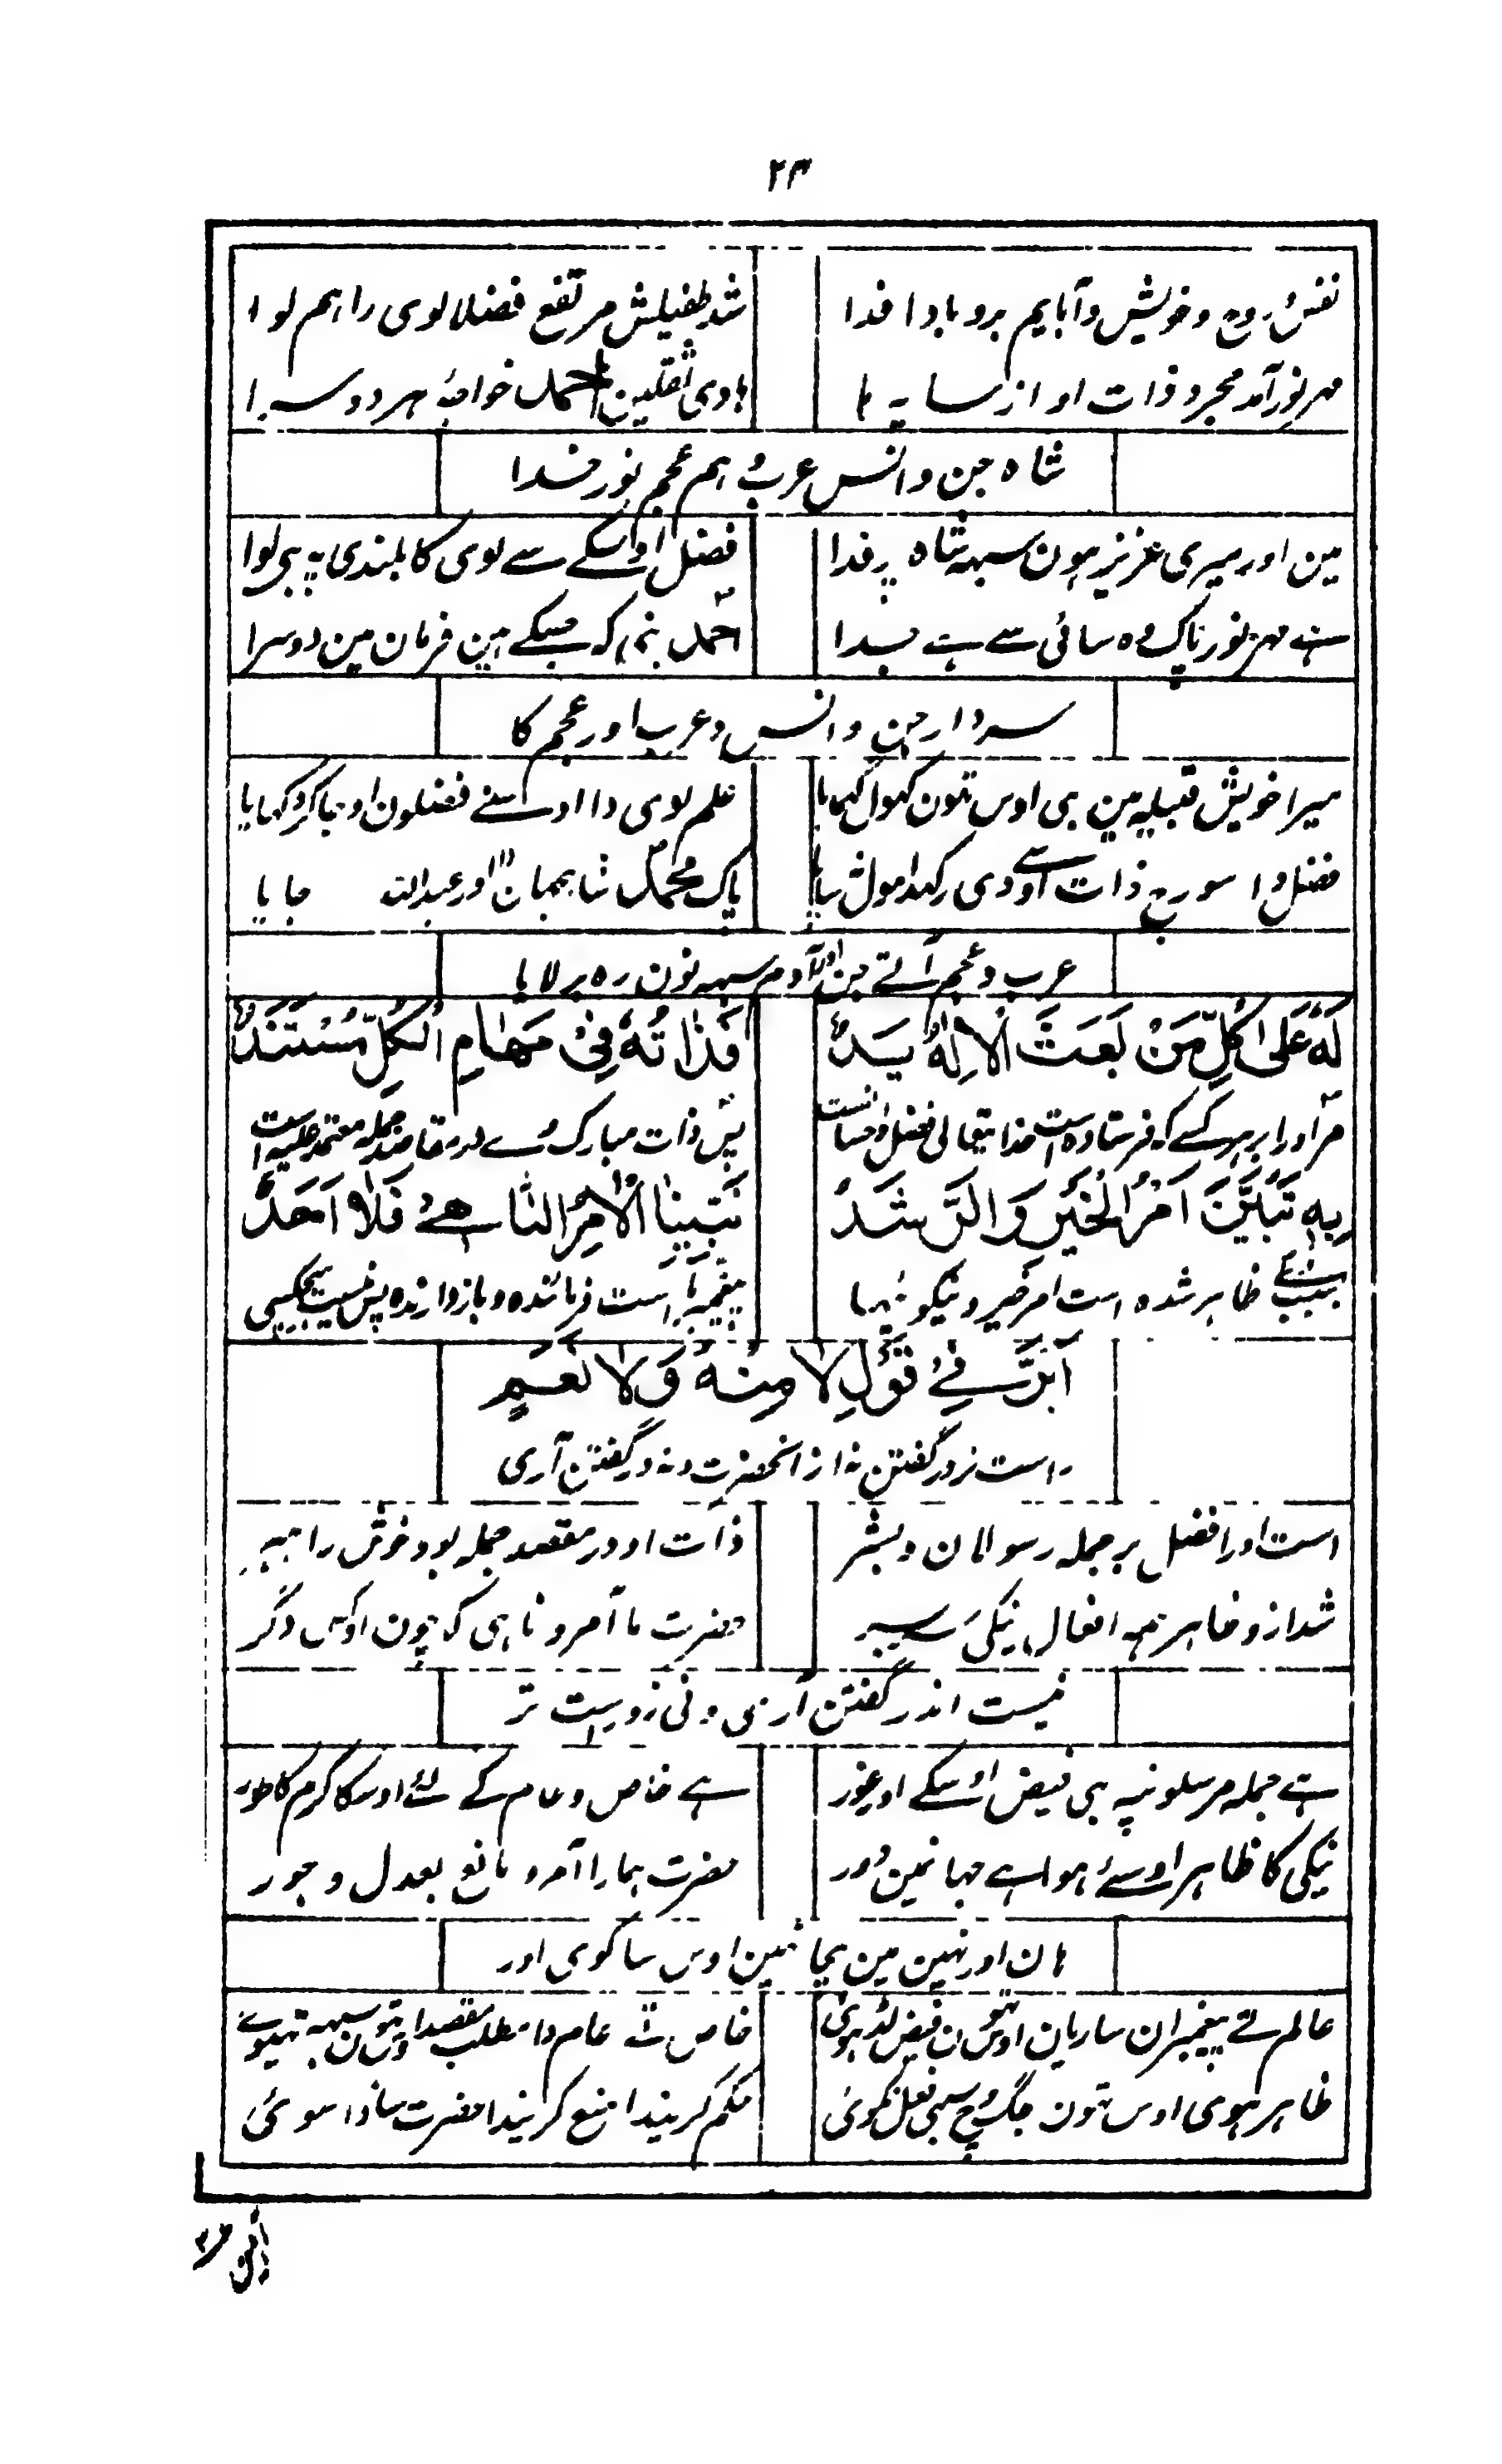 ۲۳
نفس و روح و خویش و آبایم برو بادا فدا
شد طفیلش مرتفع فضلا لوی را هم لوا
مہر نور آمد مجرد ذات او از سایہ ہا
ہادی ثقلین احمد خواجۂ ہر دو سرا
شاہ جن و انس عرب ہم عجم نور خدا
مین اور میری عزیز ہون سبہہ شاہ پر فدا
فضل اوسکے سے لوی کا بلندی پہ ہی لوا
ہے مہر نور پاک وہ سائی سے ہے جدا
احمد نبی کہ جسکے ہین فرمان مین دوسرا
سردار جن و انس و عرب اور عجم کا
میرا خویش قبیلہ مین بی اوس تون کہول کہمایا
علم لوی دا اوسنے فضلون اونچا کر دکہایا
فضل دا سورج ذات اوسدی رکہدا مول نہ سایا
پاک محمد شاہ جہان دا اور عبداللہ جایا
عرب و عجم آتے جن اور آدم سبہہ نون رہ پر لایا
لَهُ عَلَى كُلِّ مَنْ بَعَثَ الْإِلٰهُ يَدٌ
فَذَاتُهُ فِي مَهَامِ الْكُلِّ مُسْتَنَدٌ
مر او را بر ہر کسے کہ فرستادہ است خدا یتعالی فضل و احسانست
پس ذات مبارک وے در مقاصد جملہ معتمد علیہ است
بِهِ تَبَيَّنَ أَمْرُ الْخَيْرِ وَالرَّشَدُ
نَبِيُّنَا الْآمِرُ النَّاهِي فَلَا أَحَدٌ
بسبب وے ظاہر شدہ است امر خیر و نیکوئیہا
پیغمبر ما است فرمائندہ و باز دارندہ پس نیست ہیچکسی
أَبَرَّ فِي قَوْلِ لَا مِنْهُ وَلَا نَعَمِ
راست تر در گفتن نہ از انحضرت و نہ در گفتن آری
است او را فضل بر جملہ رسولان و بشر
ذات او در مقصد جملہ بود خوش راہبر
شد ازو ظاہر ہمہ افعال نیکی سیر
حضرت ما آمر و ناہی کہ چون او کس دگر
نیست اندر گفتن آری و نی زو راست تر
ہے جملہ مرسلونپہ ہی فیض اوسکے او غیور
ہے خاص و عام کے لئے اوسکا کرم کا طور
نیکی کا ظاہر اوسے ہوا ہے جہانمین دور
حضرت ہمارا آمر و مانع بعدل و جور
ہان اور نہین مین سچا نہین اوس سا کوی اور
عالم تے پیغمبران ساریان اوس تون فیض لدہوئی
خاص تے عام دا مطلب مقصد اوس تون سبہہ تہیوے
ظاہر ہوی اوس تون جگ وچ سبہی فعل نکوئی
حکم کریندا منع کریندا حضرت ساڈا سوئی